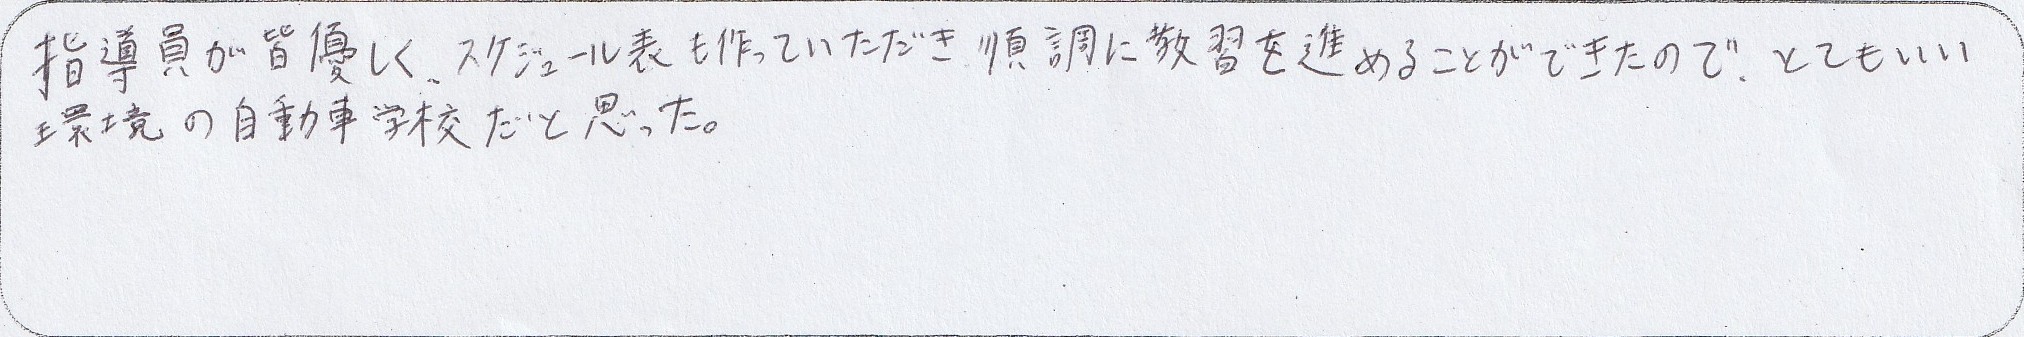 指導員が皆優しく、スケジュール表も作っていただき順調に教習を進めることができたので、とてもいい
環境の自動車学校だと思った。